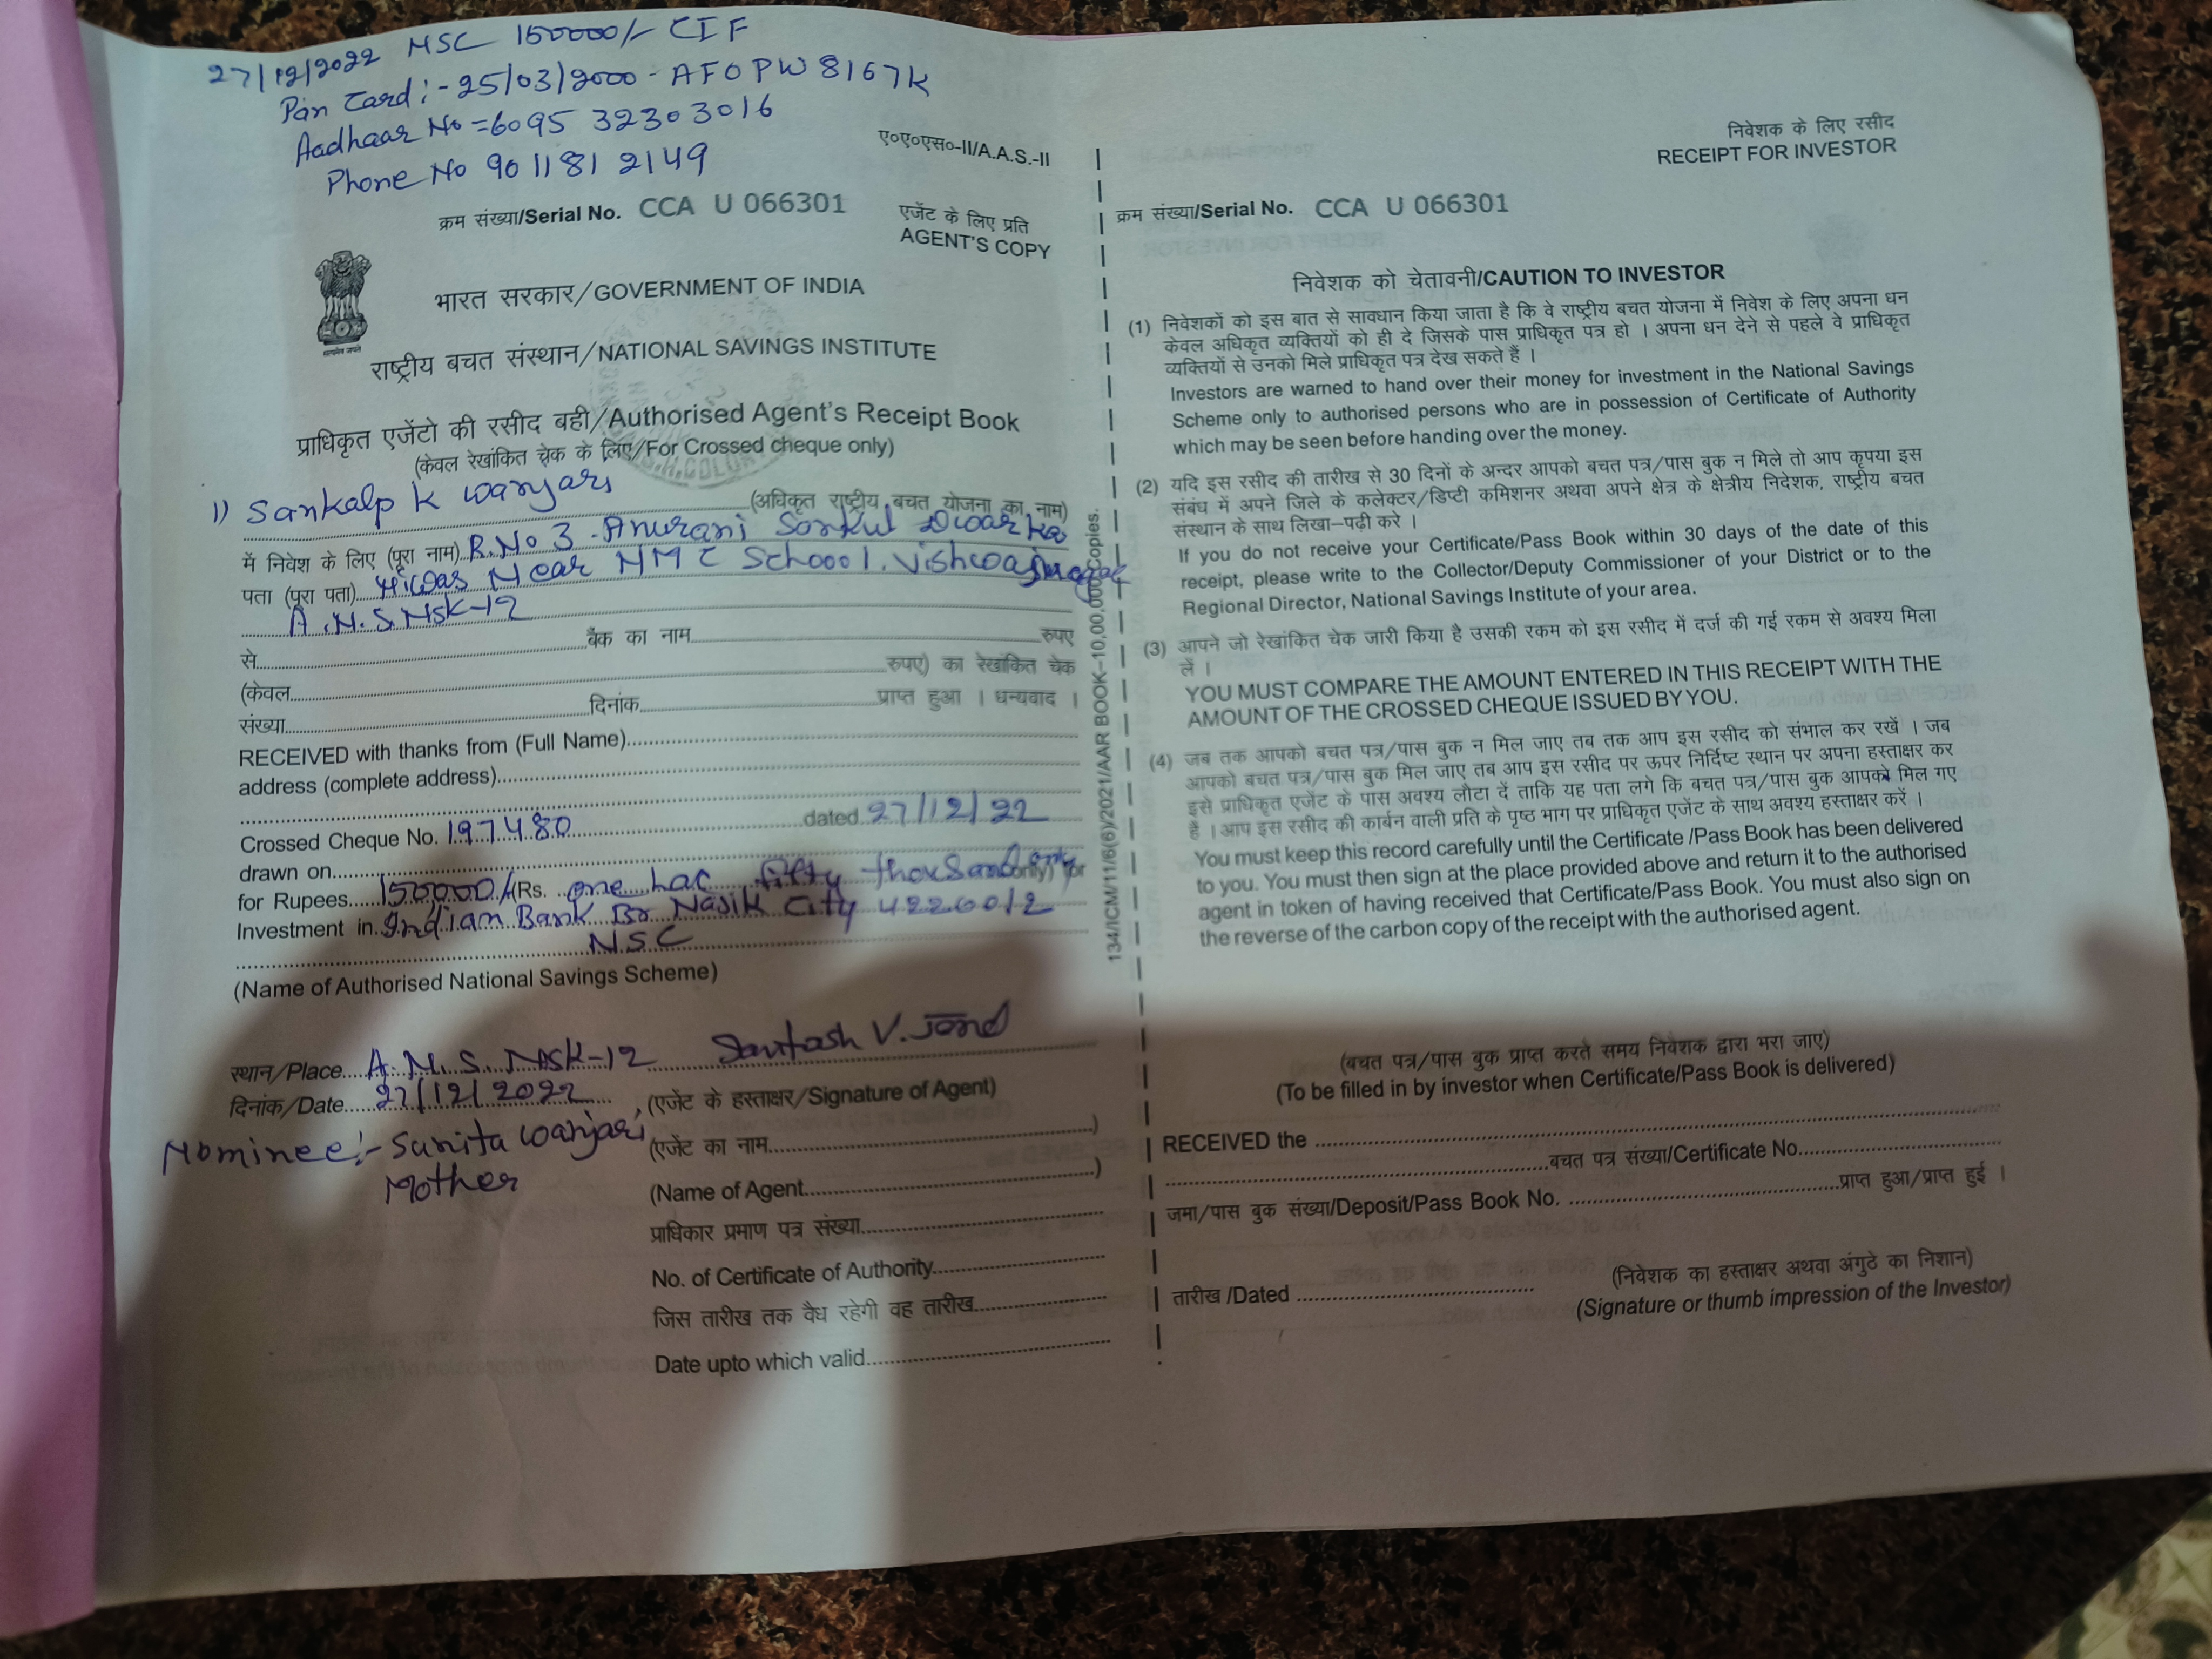 27/12/2022 NSC 150000/- CIF
Pan Card :- 25/03/2000 - AFOPW8167K
Aadhaar No = 6095 3230 3016
Phone No 9011812149
ए०ए०एस०-II/A.A.S.-II
क्रम संख्या/Serial No. CCA U 066301
एजेंट के लिए प्रति
AGENT'S COPY
भारत सरकार/GOVERNMENT OF INDIA
राष्ट्रीय बचत संस्थान/NATIONAL SAVINGS INSTITUTE
प्राधिकृत एजेंटो की रसीद बही/Authorised Agent's Receipt Book
(केवल रेखांकित चेक के लिए/For Crossed cheque only)
1) Sankalp K Wanjari
(अधिकृत राष्ट्रीय बचत योजना का नाम)
में निवेश के लिए (पूरा नाम) R.No 3 - Anurani Sankul Dwarka
पता (पूरा पता) Niwas Near NMC School. Vishwasnagar
A.N.S. NSK-12
से बैंक का नाम रुपए
(केवल रुपए) का रेखांकित चेक
संख्या दिनांक प्राप्त हुआ । धन्यवाद ।
RECEIVED with thanks from (Full Name)
address (complete address)
Crossed Cheque No. 197480 dated 27/12/22
drawn on
for Rupees 150000/- (Rs. one lac fifty thousand only only) for
Investment in Indian Bank Br Nasik City 4220012
NSC
(Name of Authorised National Savings Scheme)
स्थान/Place A.N.S. NSK-12 Santosh V.
दिनांक/Date 27/12/2022 (एजेंट के हस्ताक्षर/Signature of Agent)
Nominee:- Sunita Wanjari
Mother
(एजेंट का नाम )
(Name of Agent )
प्राधिकार प्रमाण पत्र संख्या
No. of Certificate of Authority
जिस तारीख तक वैध रहेगी वह तारीख
Date upto which valid
134/ICM/11/6(6)/2021/AAR BOOK–10,00,000 Copies.
निवेशक के लिए रसीद
RECEIPT FOR INVESTOR
क्रम संख्या/Serial No. CCA U 066301
निवेशक को चेतावनी/CAUTION TO INVESTOR
(1) निवेशकों को इस बात से सावधान किया जाता है कि वे राष्ट्रीय बचत योजना में निवेश के लिए अपना धन
केवल अधिकृत व्यक्तियों को ही दे जिसके पास प्राधिकृत पत्र हो । अपना धन देने से पहले वे प्राधिकृत
व्यक्तियों से उनको मिले प्राधिकृत पत्र देख सकते हैं ।
Investors are warned to hand over their money for investment in the National Savings
Scheme only to authorised persons who are in possession of Certificate of Authority
which may be seen before handing over the money.
(2) यदि इस रसीद की तारीख से 30 दिनों के अन्दर आपको बचत पत्र/पास बुक न मिले तो आप कृपया इस
संबंध में अपने जिले के कलेक्टर/डिप्टी कमिशनर अथवा अपने क्षेत्र के क्षेत्रीय निदेशक, राष्ट्रीय बचत
संस्थान के साथ लिखा–पढ़ी करे ।
If you do not receive your Certificate/Pass Book within 30 days of the date of this
receipt, please write to the Collector/Deputy Commissioner of your District or to the
Regional Director, National Savings Institute of your area.
(3) आपने जो रेखांकित चेक जारी किया है उसकी रकम को इस रसीद में दर्ज की गई रकम से अवश्य मिला
लें ।
YOU MUST COMPARE THE AMOUNT ENTERED IN THIS RECEIPT WITH THE
AMOUNT OF THE CROSSED CHEQUE ISSUED BY YOU.
(4) जब तक आपको बचत पत्र/पास बुक न मिल जाए तब तक आप इस रसीद को संभाल कर रखें । जब
आपको बचत पत्र/पास बुक मिल जाए तब आप इस रसीद पर ऊपर निर्दिष्ट स्थान पर अपना हस्ताक्षर कर
इसे प्राधिकृत एजेंट के पास अवश्य लौटा दें ताकि यह पता लगे कि बचत पत्र/पास बुक आपको मिल गए
हैं । आप इस रसीद की कार्बन वाली प्रति के पृष्ठ भाग पर प्राधिकृत एजेंट के साथ अवश्य हस्ताक्षर करें ।
You must keep this record carefully until the Certificate /Pass Book has been delivered
to you. You must then sign at the place provided above and return it to the authorised
agent in token of having received that Certificate/Pass Book. You must also sign on
the reverse of the carbon copy of the receipt with the authorised agent.
(बचत पत्र/पास बुक प्राप्त करते समय निवेशक द्वारा भरा जाए)
(To be filled in by investor when Certificate/Pass Book is delivered)
RECEIVED the
बचत पत्र संख्या/Certificate No.
जमा/पास बुक संख्या/Deposit/Pass Book No. प्राप्त हुआ/प्राप्त हुई ।
(निवेशक का हस्ताक्षर अथवा अंगुठे का निशान)
तारीख /Dated (Signature or thumb impression of the Investor)